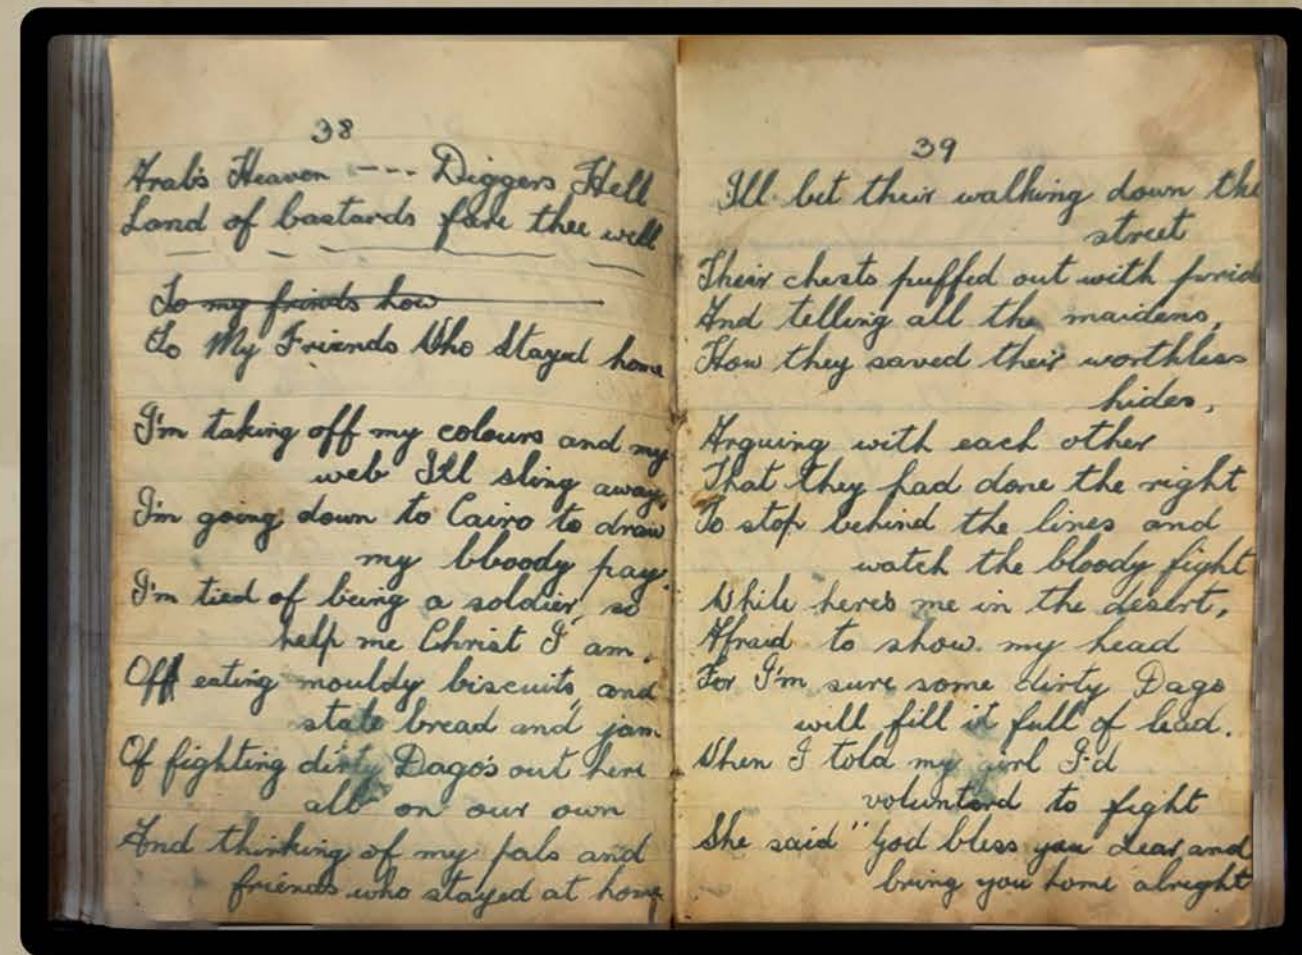 38
Arab's Heaven --- Diggers Hell
Land of bastards fare thee well
To my frinds how
To My Friends Who Stayed home
I'm taking off my colours and my
web I'll sling away,
I'm going down to Cairo to draw
my bloody pay.
I'm tied of being a soldier, so
help me Christ I am.
Off eating mouldy biscuits, and
stale bread and jam
Of fighting dirty Dago's out here
all on our own
And thinking of my pals and
friends who stayed at home
39
I'll bet their walking down the
street
Their chests puffed out with pride
And telling all the maidens,
How they saved their worthless
hides,
Arguing with each other
That they had done the right
To stop behind the lines and
watch the bloody fight
While here's me in the desert,
Afraid to show my head
For I'm sure some dirty Dago
will fill it full of lead.
When I told my girl I'd
voluntard to fight
She said "God bless you dear and
bring you home alright